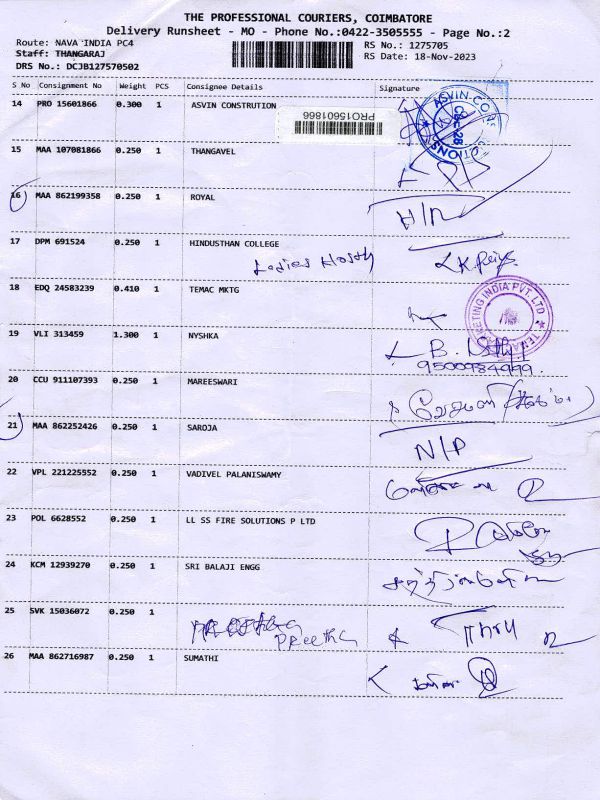 THE PROFESSIONAL COURIERS, COIMBATORE
Delivery Runsheet - MO - Phone No.:0422-3505555 - Page No.:2
Route: NAVA INDIA PC4 RS No.: 1275705
Staff: THANGARAJ RS Date: 18-Nov-2023
DRS No.: DCJB127570502
S No Consignment No Weight PCS Consignee Details Signature
14 PRO 15601866 0.300 1 ASVIN CONSTRUTION
PRO15601866
ASVIN CO
15 MAA 107081866 0.250 1 THANGAVEL
16 MAA 862199358 0.250 1 ROYAL
17 DPM 691524 0.250 1 HINDUSTHAN COLLEGE
Ladies
18 EDQ 24583239 0.410 1 TEMAC MKTG
TEMAC MARKETING INDIA PVT. LTD
19 VLI 313459 1.300 1 NYSHKA
9500984999
20 CCU 911107393 0.250 1 MAREESWARI
21 MAA 862252426 0.250 1 SAROJA
N/P
22 VPL 221225552 0.250 1 VADIVEL PALANISWAMY
23 POL 6628552 0.250 1 LL SS FIRE SOLUTIONS P LTD
24 KCM 12939270 0.250 1 SRI BALAJI ENGG
25 SVK 15036072 0.250 1
Preetha
26 MAA 862716987 0.250 1 SUMATHI